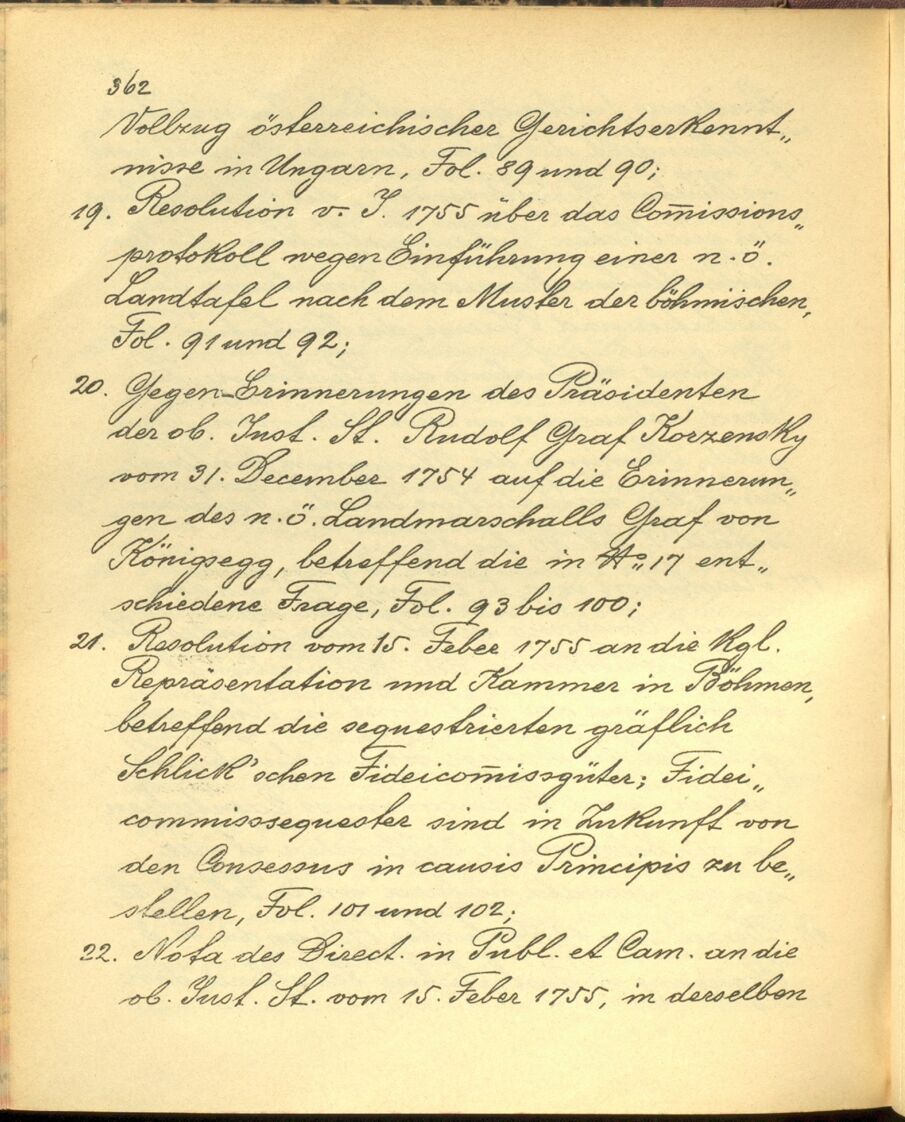 362
Vollzug österreichischer Gerichtserkennt„
nisse in Ungarn, Fol. 89 und 90;
19. Resolution v. J. 1755 über das Com̅issions„
protokoll wegen Einführung einer n. ö.
Landtafel nach dem Muster der böhmischen,
Fol. 91 und 92;
20. Gegen-Erinnerungen des Präsidenten
der ob. Just. St. Rudolf Graf Korzensky
vom 31. December 1754 auf die Erinnerun„
gen des n. ö. Landmarschalls Graf von
Königsegg, betreffend die in No 17 ent„
schiedene Frage, Fol. 93 bis 100;
21. Resolution vom 15. Feber 1755 an die kgl.
Repräsentation und Kammer in Böhmen,
betreffend die sequestrierten gräflich
Schlick'schen Fideicom̅issgüter; Fidei„
commisssequester sind in Zukunft von
den Consessus in causis Principis zu be„
stellen, Fol. 101 und 102;
22. Nota des Direct. in Publ. et Cam. an die
ob. Just. St. vom 15. Feber 1755, in derselben